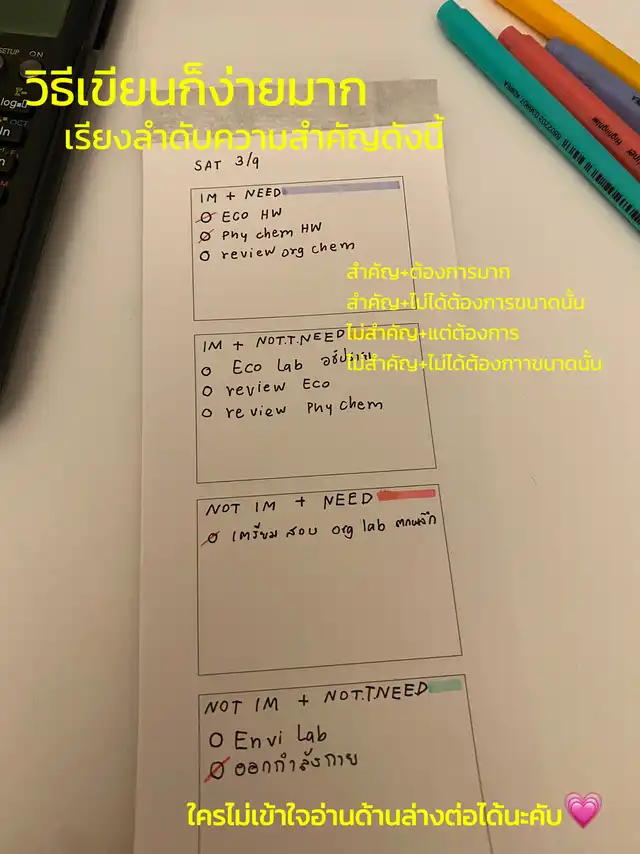 SETUP ON
วิธีเขียนก็ง่ายมาก
เรียงลำดับความสำคัญดังนี้
SAT 3/9
IM + NEED
Eco HW
Phy chem HW
review org chem
สำคัญ+ต้องการมาก
สำคัญ+ไม่ได้ต้องการขนาดนั้น
ไม่สำคัญ+แต่ต้องการ
ไม่สำคัญ+ไม่ได้ต้องกาาขนาดนั้น
IM + NOT.T.NEED
Eco Lab
review Eco
review Phy chem
NOT IM + NEED
เตรียมสอบ org lab ตกผลึก
NOT IM + NOT.T.NEED
Envi Lab
ออกกำลังกาย
ใครไม่เข้าใจอ่านด้านล่างต่อได้นะคับ